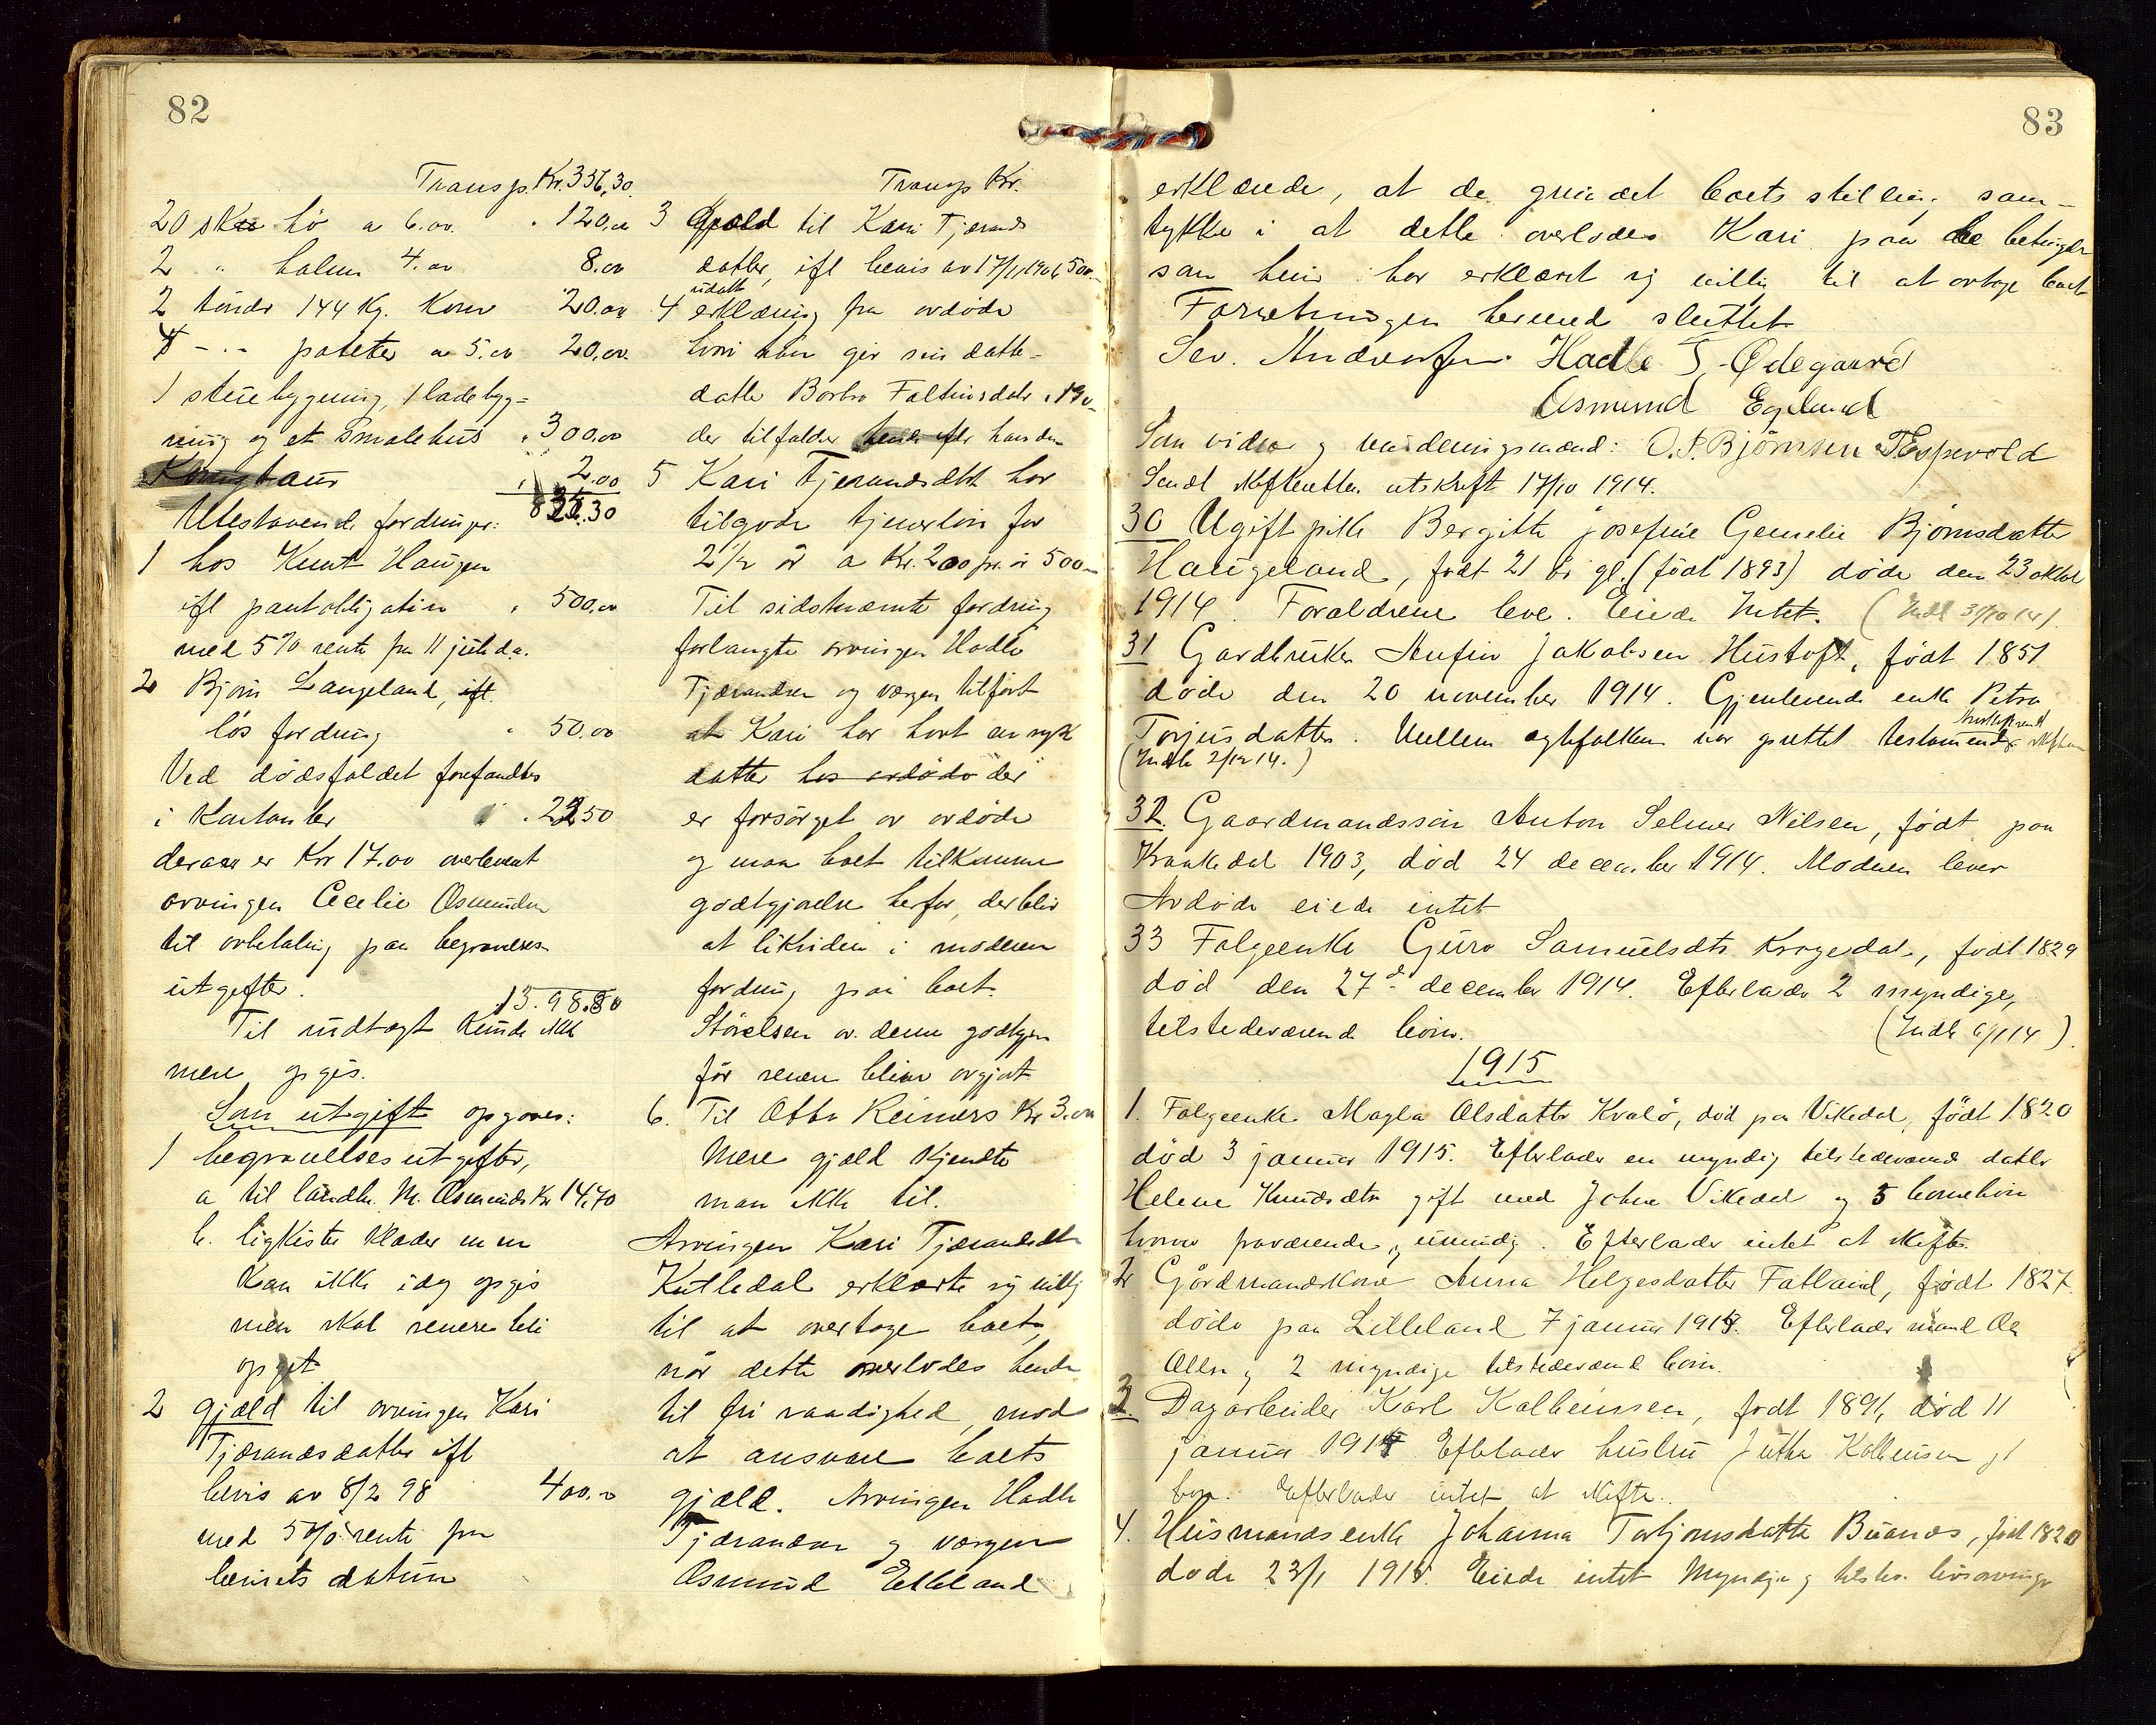 82
Transp. Kr. 356,30.
20 sk hö a 6.oo. " 120,oo
2 " halm 4.oo 8.oo
2 tönder 144 Kg. Korn 20.oo
4 - " - poteter a 5.oo 20,oo
1 stuebygning, 1 ladebyg-
ning og et smalehus " 300,oo
2.00
826.30
Utestaaende fordringer:
1 hos Knut Haugen
ifl pantobligation " 500,oo
med 5% rente fra 11 juli d.a.
2 Bjørn Langeland, ifl.
løs fordring " 50.oo
Ved dödsfaldet forefandtes
i Kontanter " 22.50
derav er Kr 17.oo overlevert
arvingen Cecelie Osmundsen
til avbetaling paa begravelses
utgifter.
1398.80
Til indtægt kunde ikke
mere opgis.
Som utgift opgaves:
1 begravelsesutgifter,
a til landh. M. Osmunds Kr 14,70
b. ligkiste klæder m m
kan ikke idag opgis
men skal senere bli
opgit
2 gjæld til arvingen Kari
Tjærandsdatter ifl
bevis av 8/2 98 400.-
med 5% rente fra
bevisets datum
Transp Kr.
3 Gjæld til Kari Tjærands
datter, ifl bevis av 17/11 1906 500.-
4 udatt erklæring fra avdöde
hvori han gir sin datte-
datter Borbro Faltinsdatr "
der tilfalder
5 Kari Tjerandsdtt har
tilgode tjenerlön for
2 1/2 år a Kr. 200 pr. år 500-
Til sidstnævnte fordring
forlangte arvingen Hadle
Tjærandsen og værgen tilført
at Kari har havt en syk
datter hos avdöde der
er forsörget av avdöde
og maa boet tilkomme
godtgjørelse herfor, der blir
at likvidere i moderen
fordring paa boet.
Störelsen av denne godtgjør
før senere blive avgjort
6. Til Otto Reimers Kr 3.oo
Mere gjæld kjendte
man ikke til.
Arvingen Kari Tjærandsdtr
Kutledal erklærte sig villig
til at overtage boet,
når dette overlodes hende
til fri raadighed, mod
at ansvare boets
gjæld. Arvingen Hadle
Tjærandsen og værgen
Osmund Eikeland
83
erklærede, at de grundet boets stilling, sam-
tykke i at dette overlodes Kari paa de betingelser
som hun har erklæret sig villig til at overtage boet
Forretningen hermed sluttet
Sev. Andersen. Hadle T. Ødegaard
Osmund Egeland
Som vidner og vurderingsmænd: O. P. Björnsen T Espevold
Sendt skifteretten utskrift 17/10 1914.
30 Ugift pike Bergitte Josefine Gemelie Björnsdatter
Haugeland, født 21 år gl. (født 1893) døde den 23 oktbr
1914. Forældrene lever. Eiede Intet. (Indb 31/10 14).
31 Gardbruker Aufin Jakobsen Hustoft, født 1851
døde den 20 november 1914. Gjenlevende enke Petra
Torjusdatter. Mellem egtefolkene var oprettet testamente
(Indb 2/12 14.)
32. Gaardmandssön Anton Selmer Nilsen, født paa
Kraakedal 1903, död 24 december 1914. Moderen lever
Avdöde eiede intet
33 Folgeenke Guro Samuelsdtr Krogedal, født 1829
død den 27de december 1914. Efterlader 2 myndige,
tilstedeværende börn. (Indb 6/1 14).
1915
1. Folgeenke Magla Olsdatter Kvalö, död paa Vikedal, født 1820
død 3 januar 1915. Efterlader en myndig tilstedeværend datter
Helene Knudsdtr gift med Johan Vikedal og 5 börnebörn
hvorav fraværende og umyndig. Efterlader intet at skifte.
2 Gårdmandskone Anna Helgesdatter Fatland, født 1827.
døde paa Lilleland 7 januar 1915. Efterlader mand Ole
Olsen og 2 myndige tilstedeværend börn.
3. Dagarbeider Karl Kolbeinssen, født 1891, død 11
januar 1915 Efterlader hustru Jutha Kolbeinsen og 1
barn. Efterlader intet at skifte.
4. Husmandsenke Johanna Torbjornsdatter Buanes, født 1820
døde 23/1 1915. Eiede intet Myndige og tilstev. livsarvinger